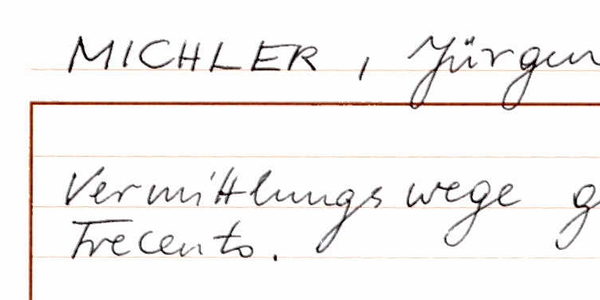 MICHLER, Jürgen
Vermittlungswege g
Trecento.